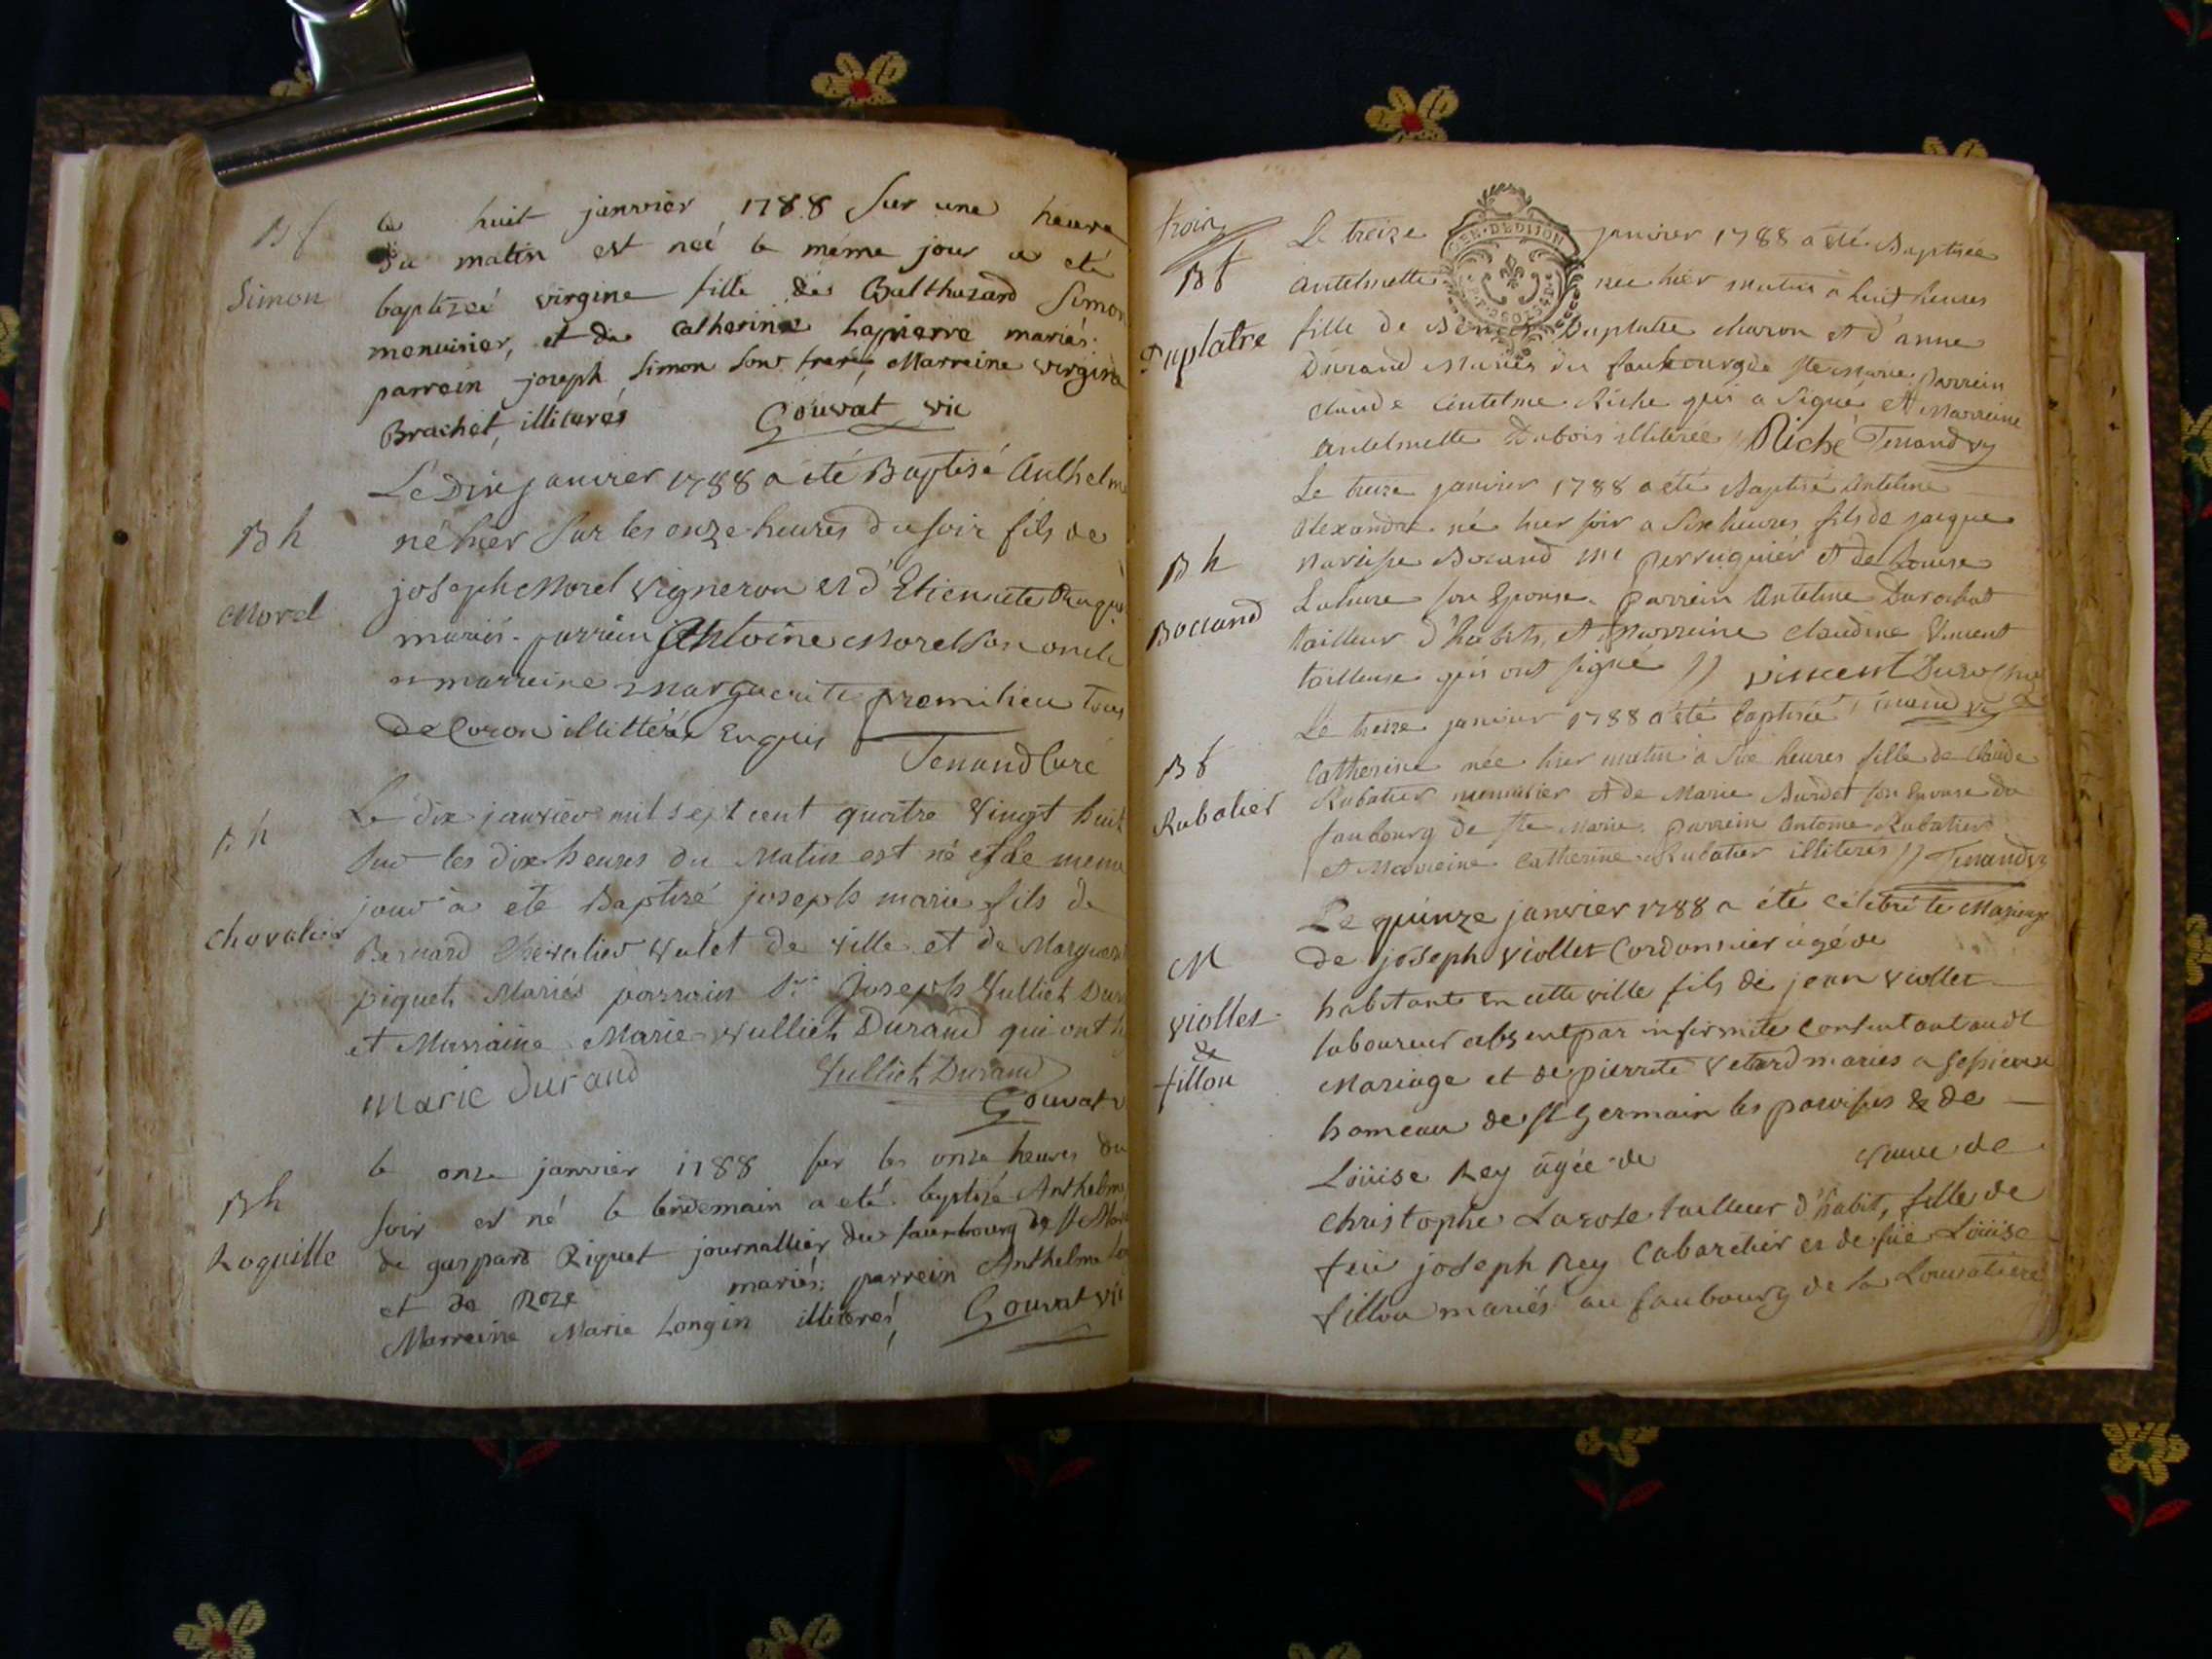 Bf
Simon
le huit janvier 1788 sur une heure
du matin est neé le méme jour a eté
baptizeé virgine fille de Balthazard Simon
menuisier, et de Catherine Lapierre mariés.
parrein joseph Simon son frere, Marreine virgine
Brachet illiterés Gouvat vic
Bh
Morel
Le Dix janvier 1788 a été Baptisé Anthelme
né hier sur les onze heures du soir fils de
joseph Morel vigneron et d'Etiennette
mariés. parrein Antoine Morel son oncle
et marreine Marguerite premilieu tous
de Coron illittérés Enquis
Tenand Curé
Bh
Chevalier
Le dix janvier mil sept cent quatre vingt huit
sur les dix heures du Matin est né et le meme
jour à eté Baptizé joseph marie fils de
Bernard Chevalier valet de ville et de Marguerite
piquet Mariés parrain Sr. Joseph Vulliet Durand
et Marraine Marie Vulliet Durand qui ont
Marie Durand Vulliet Durand
Gouvat v
Bh
Roguille
le onze janvier 1788 sur les onze heures du
soir est né le lendemain a eté baptizé Anthelme
de gaspard Riquet journallier du fauxbourg de st Marie
et de Roze mariés; parrein Anthelme
Marreine Marie Longin illiterés Gouvat vic
trois
Bf
Duplatre
GEN. DE DIJON
Le treize janvier 1788 a été Baptisée
Antelmette née hier matin à huit heures
fille de Duplatre charon et d'anne
Durand Mariés du faubourg de Ste Marie. parrein
Claude Antelme Riche qui a signé, et Marreine
Antelmette Dubois illiterée Riche Tenand vic
Bh
Bocrand
Le treize janvier 1788 a été Baptisé Antelme
Alexandre né hier soir a six heures fils de jacque
Narcisse Bocrand Me perruquier et de Louise
son Epouse. parrein Antelme Durochat
tailleur d'habits, et Marreine Claudine Vincent
tailleuse qui ont signé // vincent Durochat
Tenand vic
Bf
Rubatier
Le treize janvier 1788 a été baptisée
Catherine née hier matin à six heures fille de Claude
Rubatier menuisier et de Marie Burdet son Epouse du
faubourg de Ste Marie. parrein Antoine Rubatier
et Marreine Catherine Rubatier illiterés // Tenand vic
M
Viollet
&
fillou
Le quinze janvier 1788 a été célébré le Mariage
de joseph Viollet Cordonnier agé de
habitant en cette ville fils de jean Viollet
laboureur absent par infirmité Consentant audt
Mariage et de pierrette Vetard mariés a
hameau de st Germain les paroisses & de
Loüise Rey âgée de veuve de
Christophe Larose tailleur d'habit, fille de
feu joseph Rey Cabaretier et de füe Loüise
fillou mariés au faubourg de la Louvatiere